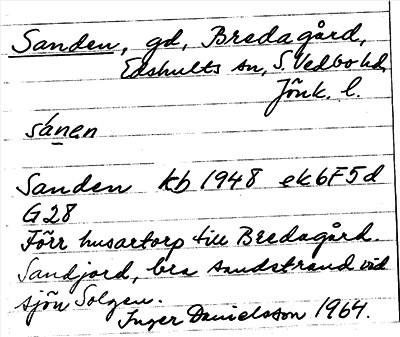 Sanden, gd, Bredagård,
Edshults sn, S. Vedbo hd,
Jönk. l.
sánen
Sanden kb 1948 ek6F5d
G28
Förr husartorp till Bredagård.
Sandjord, bra sandstrand vid
sjön Solgen.
Inger Danielsson 1964.